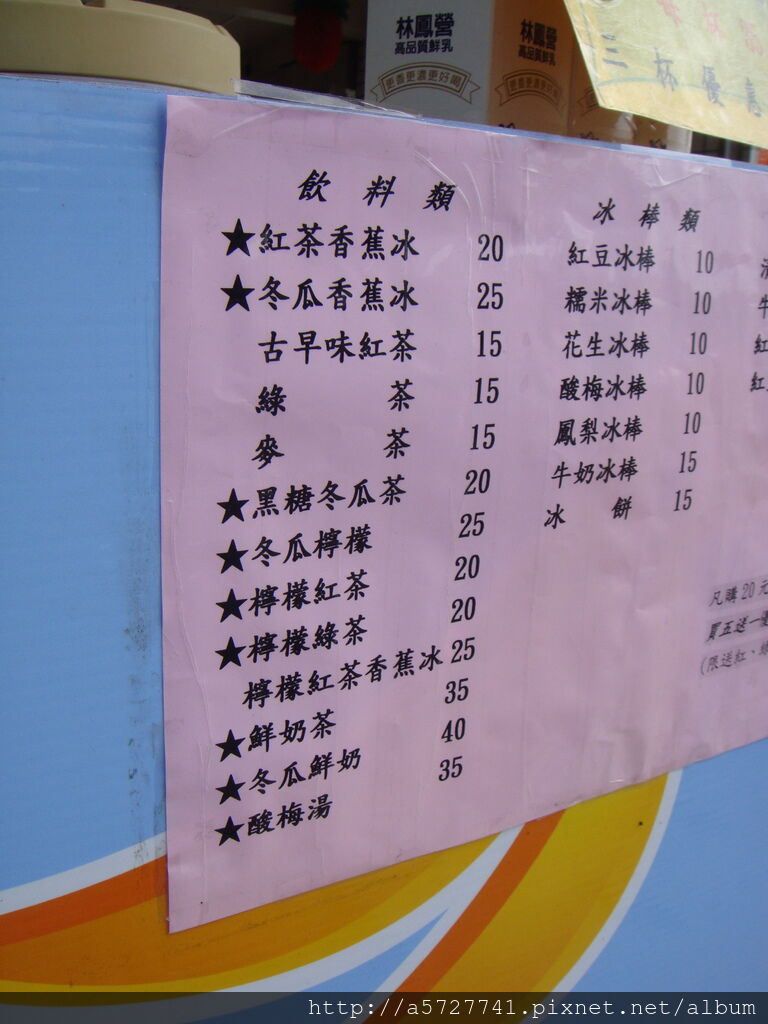 林鳳營
高品質鮮乳
更香更濃更好喝
林鳳營
高品質鮮乳
更香更濃更好喝
三杯優惠
飲料類
★紅茶香蕉冰 20
★冬瓜香蕉冰 25
古早味紅茶 15
綠茶 15
麥茶 15
★黑糖冬瓜茶 20
★冬瓜檸檬 25
★檸檬紅茶 20
★檸檬綠茶 20
檸檬紅茶香蕉冰 25
★鮮奶茶 35
★冬瓜鮮奶 40
★酸梅湯 35
冰棒類
紅豆冰棒 10
糯米冰棒 10
花生冰棒 10
酸梅冰棒 10
鳳梨冰棒 10
牛奶冰棒 15
冰餅 15
牛
紅
紅
凡購20元
買五送一優
(限送紅、綠
http://a5727741.pixnet.net/album